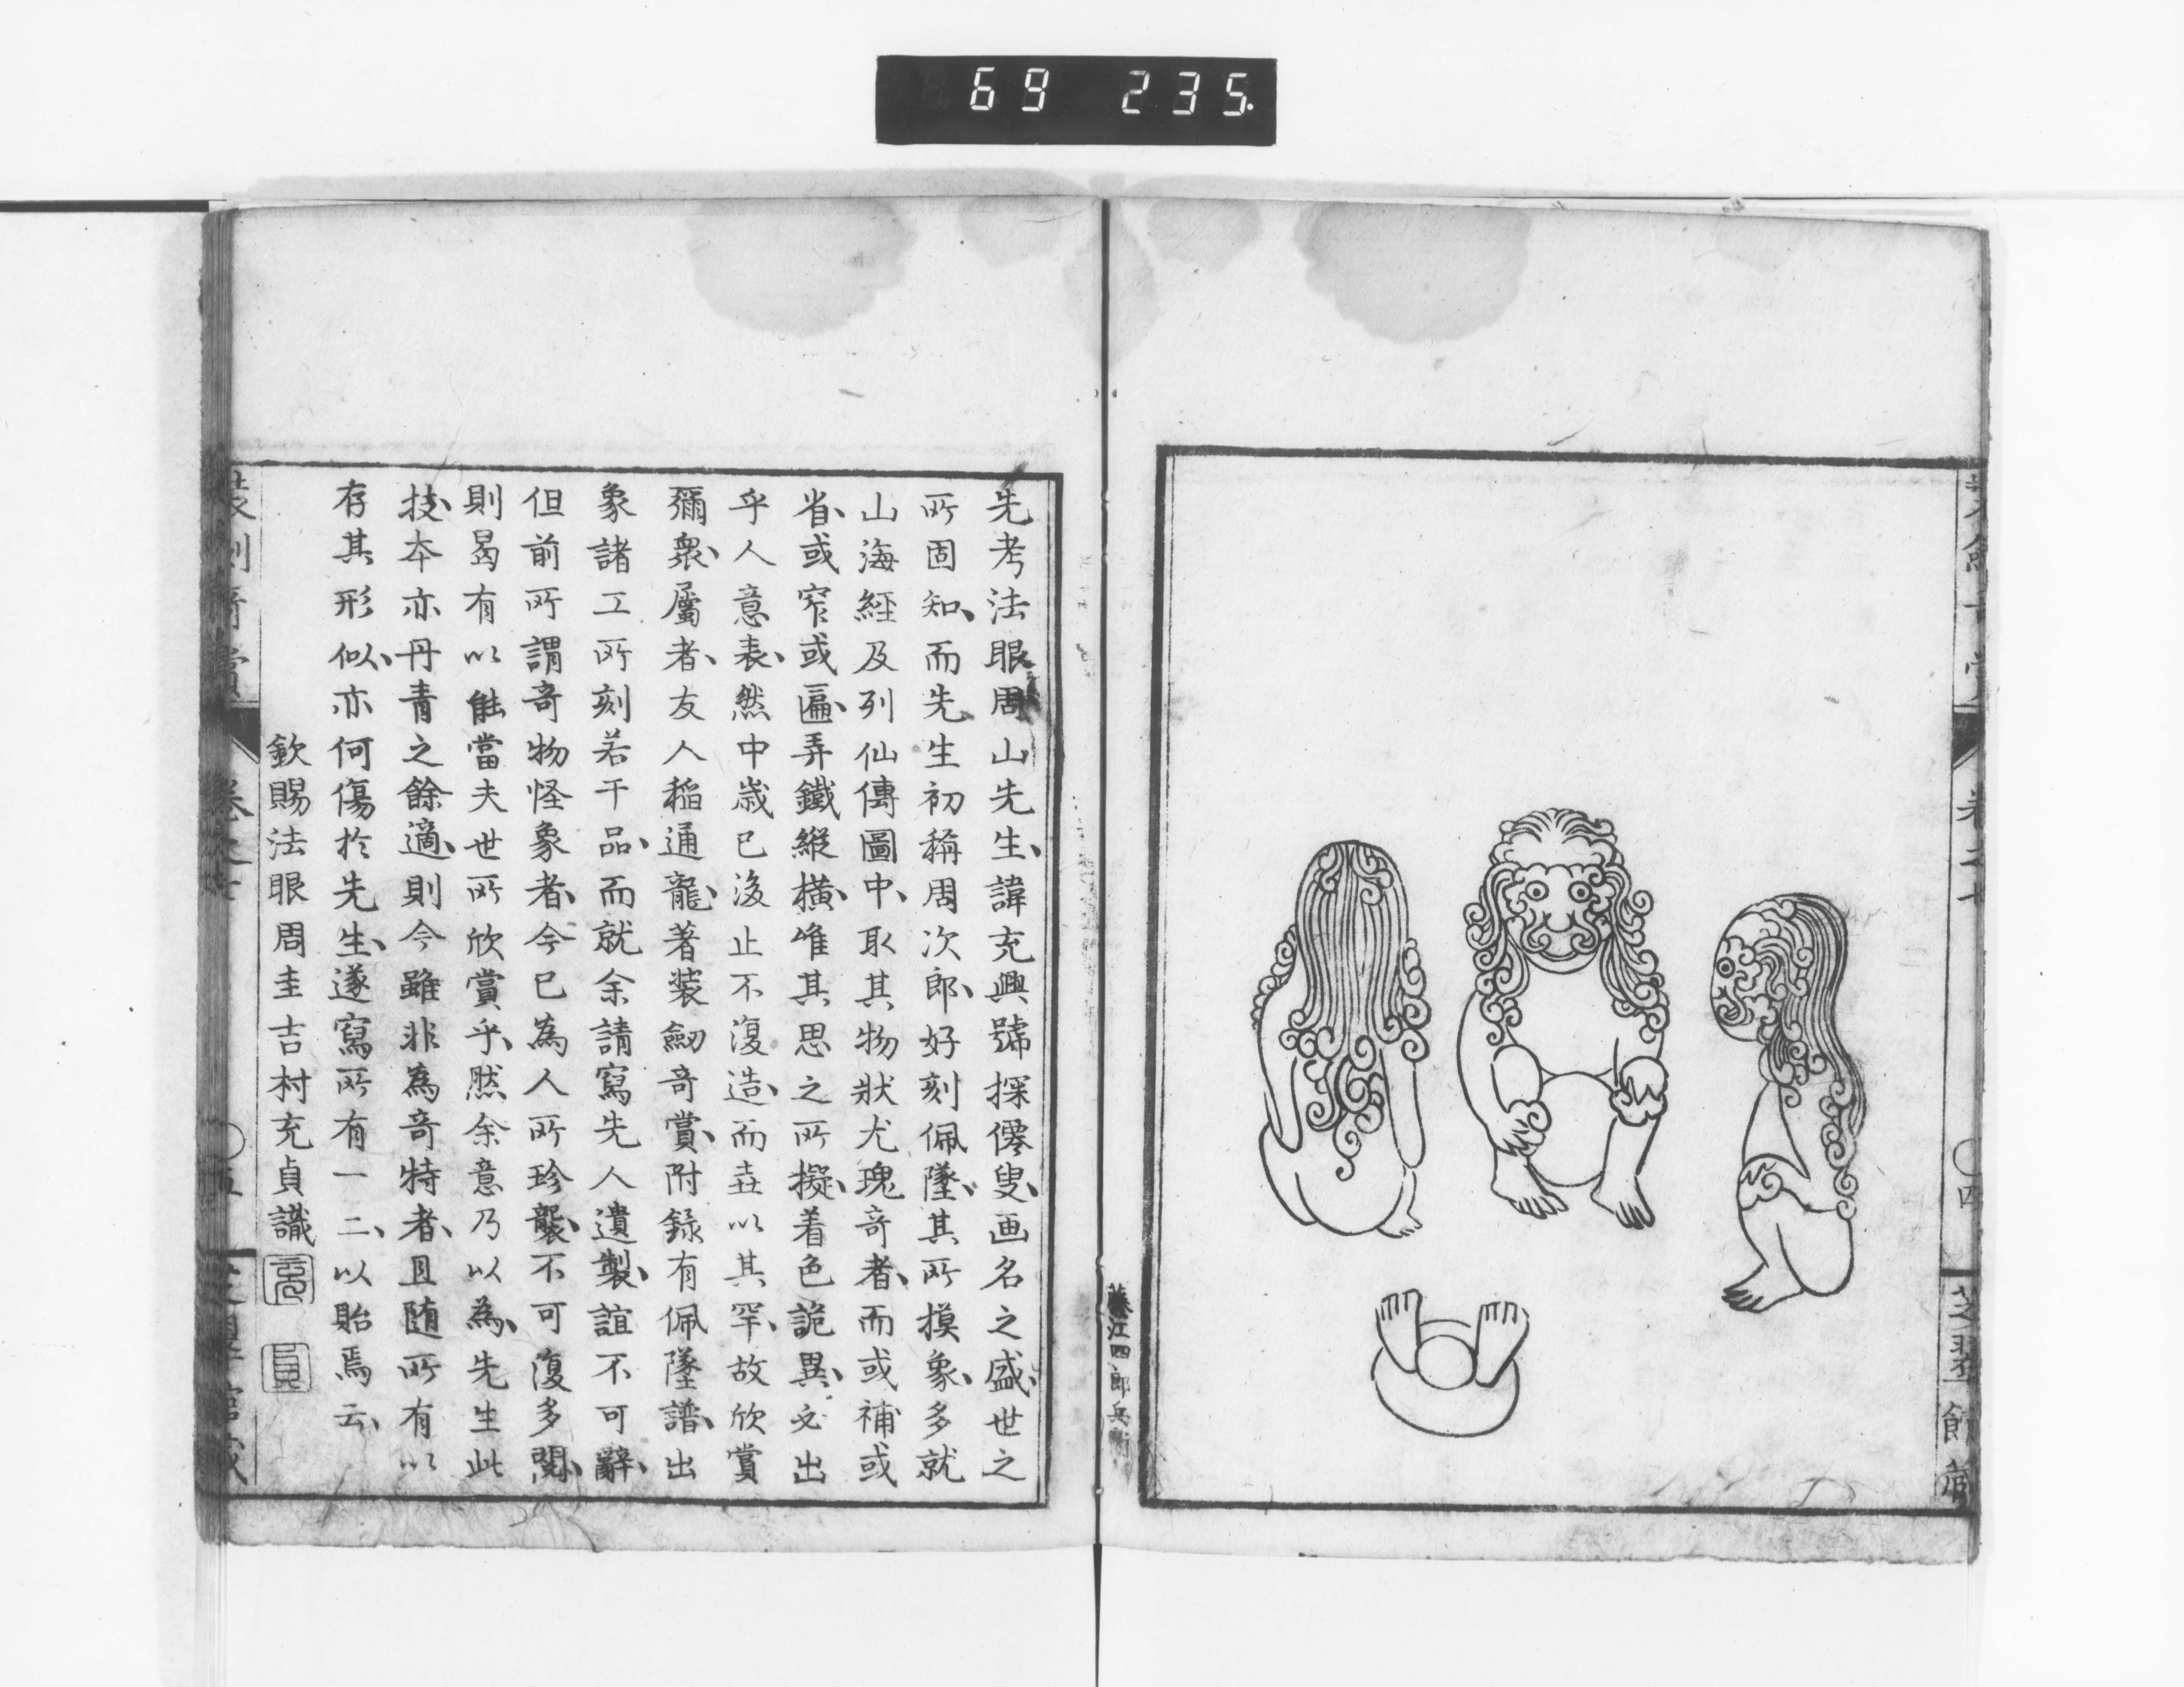 69 235.
卷之七
四
芝翠館藏
藤江四郎兵衛
先考法眼周山先生、諱充興號探僊叟、画名之盛、世之
所固知、而先生初稱周次郎、好刻佩墜、其所摸象、多就
山海經及列仙傳圖中、取其物狀尤瑰竒者、而或補或
省、或窄或匾、弄鐵縱橫、唯其思之所擬、着色詭異、必出
乎人意表、然中歳已後止不復造、而壵以其罕、故欣賞
彌衆、屬者、友人稲通龍、著装劔竒賞、附錄有佩墜譜、出
象諸工所刻若干品、而就余請寫先人遺製、誼不可辭、
但前所謂竒物怪象者、今已為人所珍襲、不可復多閲、
則曷有以能當夫世所欣賞乎、然余意乃以為、先生此
技、本亦丹青之餘適、則今雖非為竒特者、且随所有以
存其形似、亦何傷於先生、遂寫所有一二、以貽焉云、
欽賜法眼周圭吉村充貞識
装劔竒賞
卷之七
五
芝翠館藏